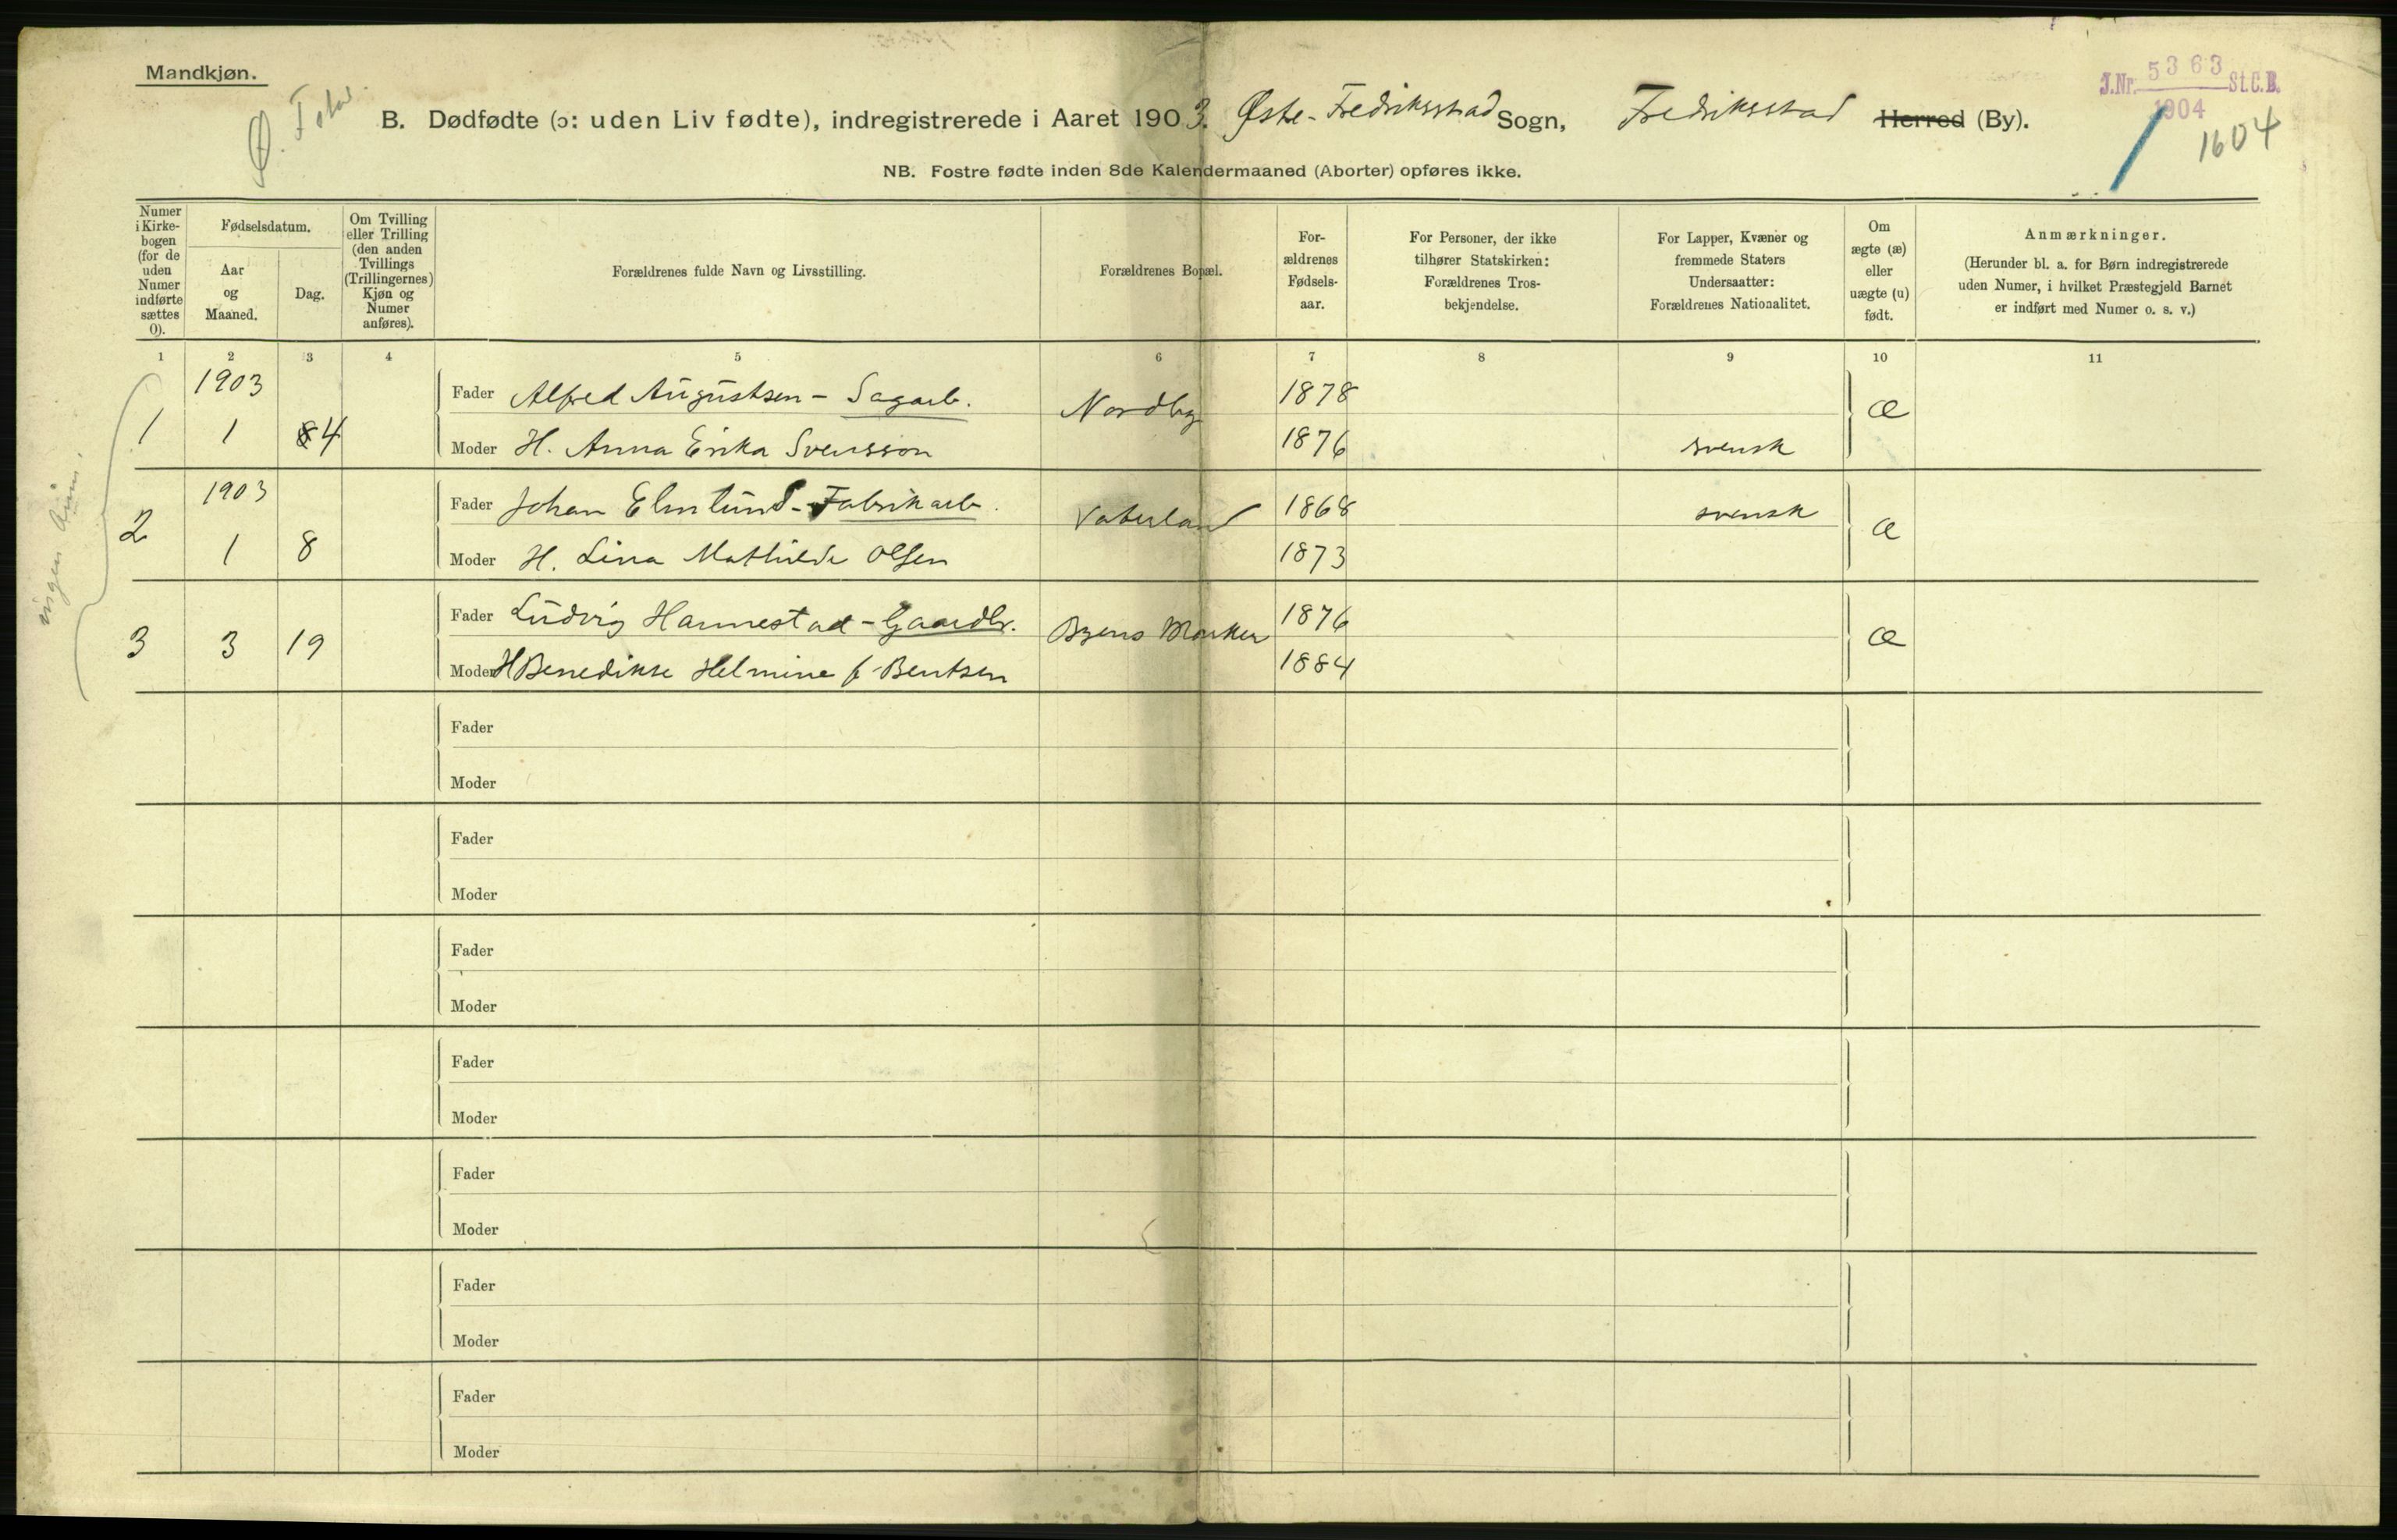 Mandkjøn.
J.Nr. 5363 St.C.B.
1904
1604
B. Dødfødte (ɔ: uden Liv fødte), indregistrerede i Aaret 1903. Østre-Fredriksstad Sogn, Fredriksstad Herred (By).
NB. Fostre fødte inden 8de Kalendermaaned (Aborter) opføres ikke.
Numer i Kirke-bogen (for de uden Numer indførte sættes 0).
Fødselsdatum.
Aar og Maaned.
Dag.
Om Tvilling eller Trilling (den anden Tvillings (Trillingernes) Kjøn og Numer anføres).
Forældrenes fulde Navn og Livsstilling.
Forældrenes Bopæl.
For-ældrenes Fødsels-aar.
For Personer, der ikke tilhører Statskirken: Forældrenes Tros-bekjendelse.
For Lapper, Kvæner og fremmede Staters Undersaatter: Forældrenes Nationalitet.
Om ægte (æ) eller uægte (u) født.
Anmærkninger.
(Herunder bl. a. for Børn indregistrerede uden Numer, i hvilket Præstegjeld Barnet er indført med Numer o. s. v.)
1 2 3 4 5 6 7 8 9 10 11
1903
Fader Alfred Augustsen - Sagarb. Nordby 1878 æ
1 1 4
Moder H. Anna Erika Svensson 1876 svensk
1903
Fader Johan Elmlund - Fabrikarb. Vaterland 1868 svensk æ
2 1 8
Moder H. Lina Mathilde Olsen 1873
Fader Ludvig Hannestad - Gaardbr. Byens Marker 1876 æ
3 3 19
Moder H Benedikte Helmine f. Bentsen 1884
Fader
Moder
Fader
Moder
Fader
Moder
Fader
Moder
Fader
Moder
Fader
Moder
Fader
Moder